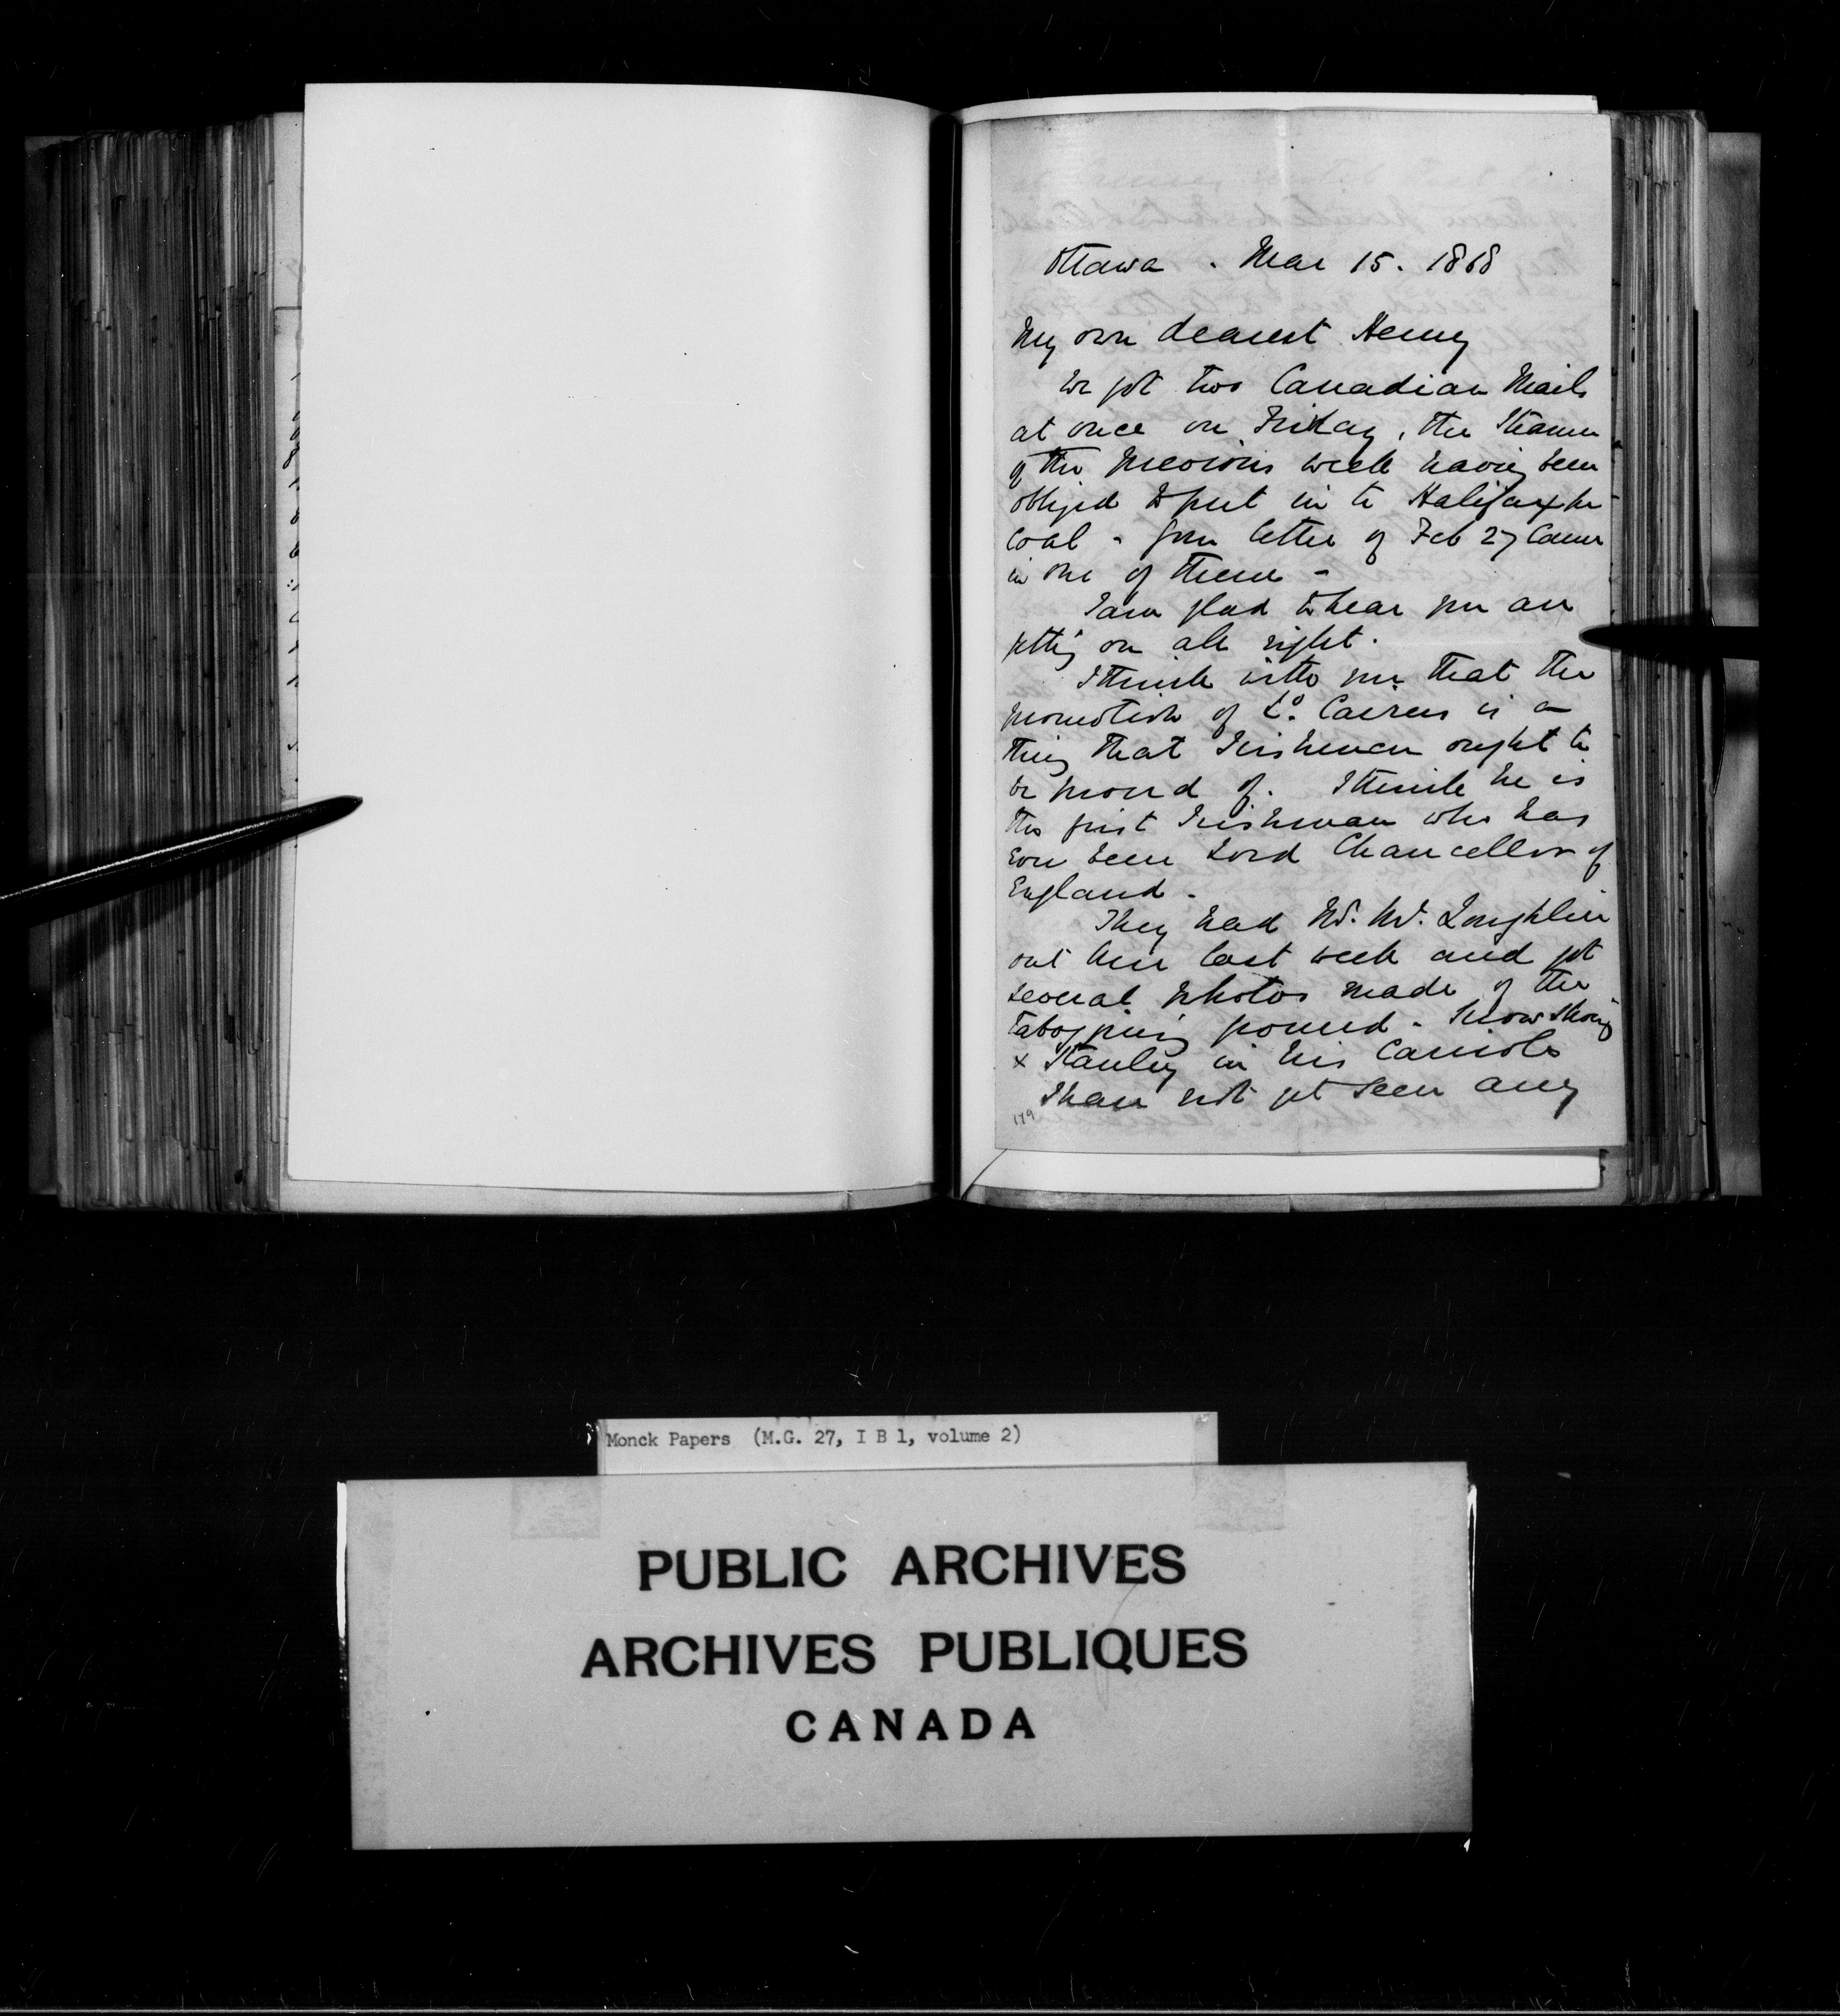 Ottawa . Mar 15. 1868
My own dearest Henry
We got two Canadian Mails
at once on Friday, the Steamer
of the previous week having been
obliged to put in to Halifax for
coal - Your letter of Feb 27 came
in one of these -
I am glad to hear you are
getting on all right.
I think with you that the
promotion of Ld. Cairns is a
thing that Irishmen ought to
be proud of. I think he is
the first Irishman who has
ever been Lord Chancellor of
England -
They had Mr. Mc. Loughlin
out here last week and got
several photos made of the
tabogging ground - Snow shoeing
& Stanley in his Cariole
I have not yet seen any
179
Monck Papers (M.G. 27, I B 1, volume 2)
PUBLIC ARCHIVES
ARCHIVES PUBLIQUES
CANADA